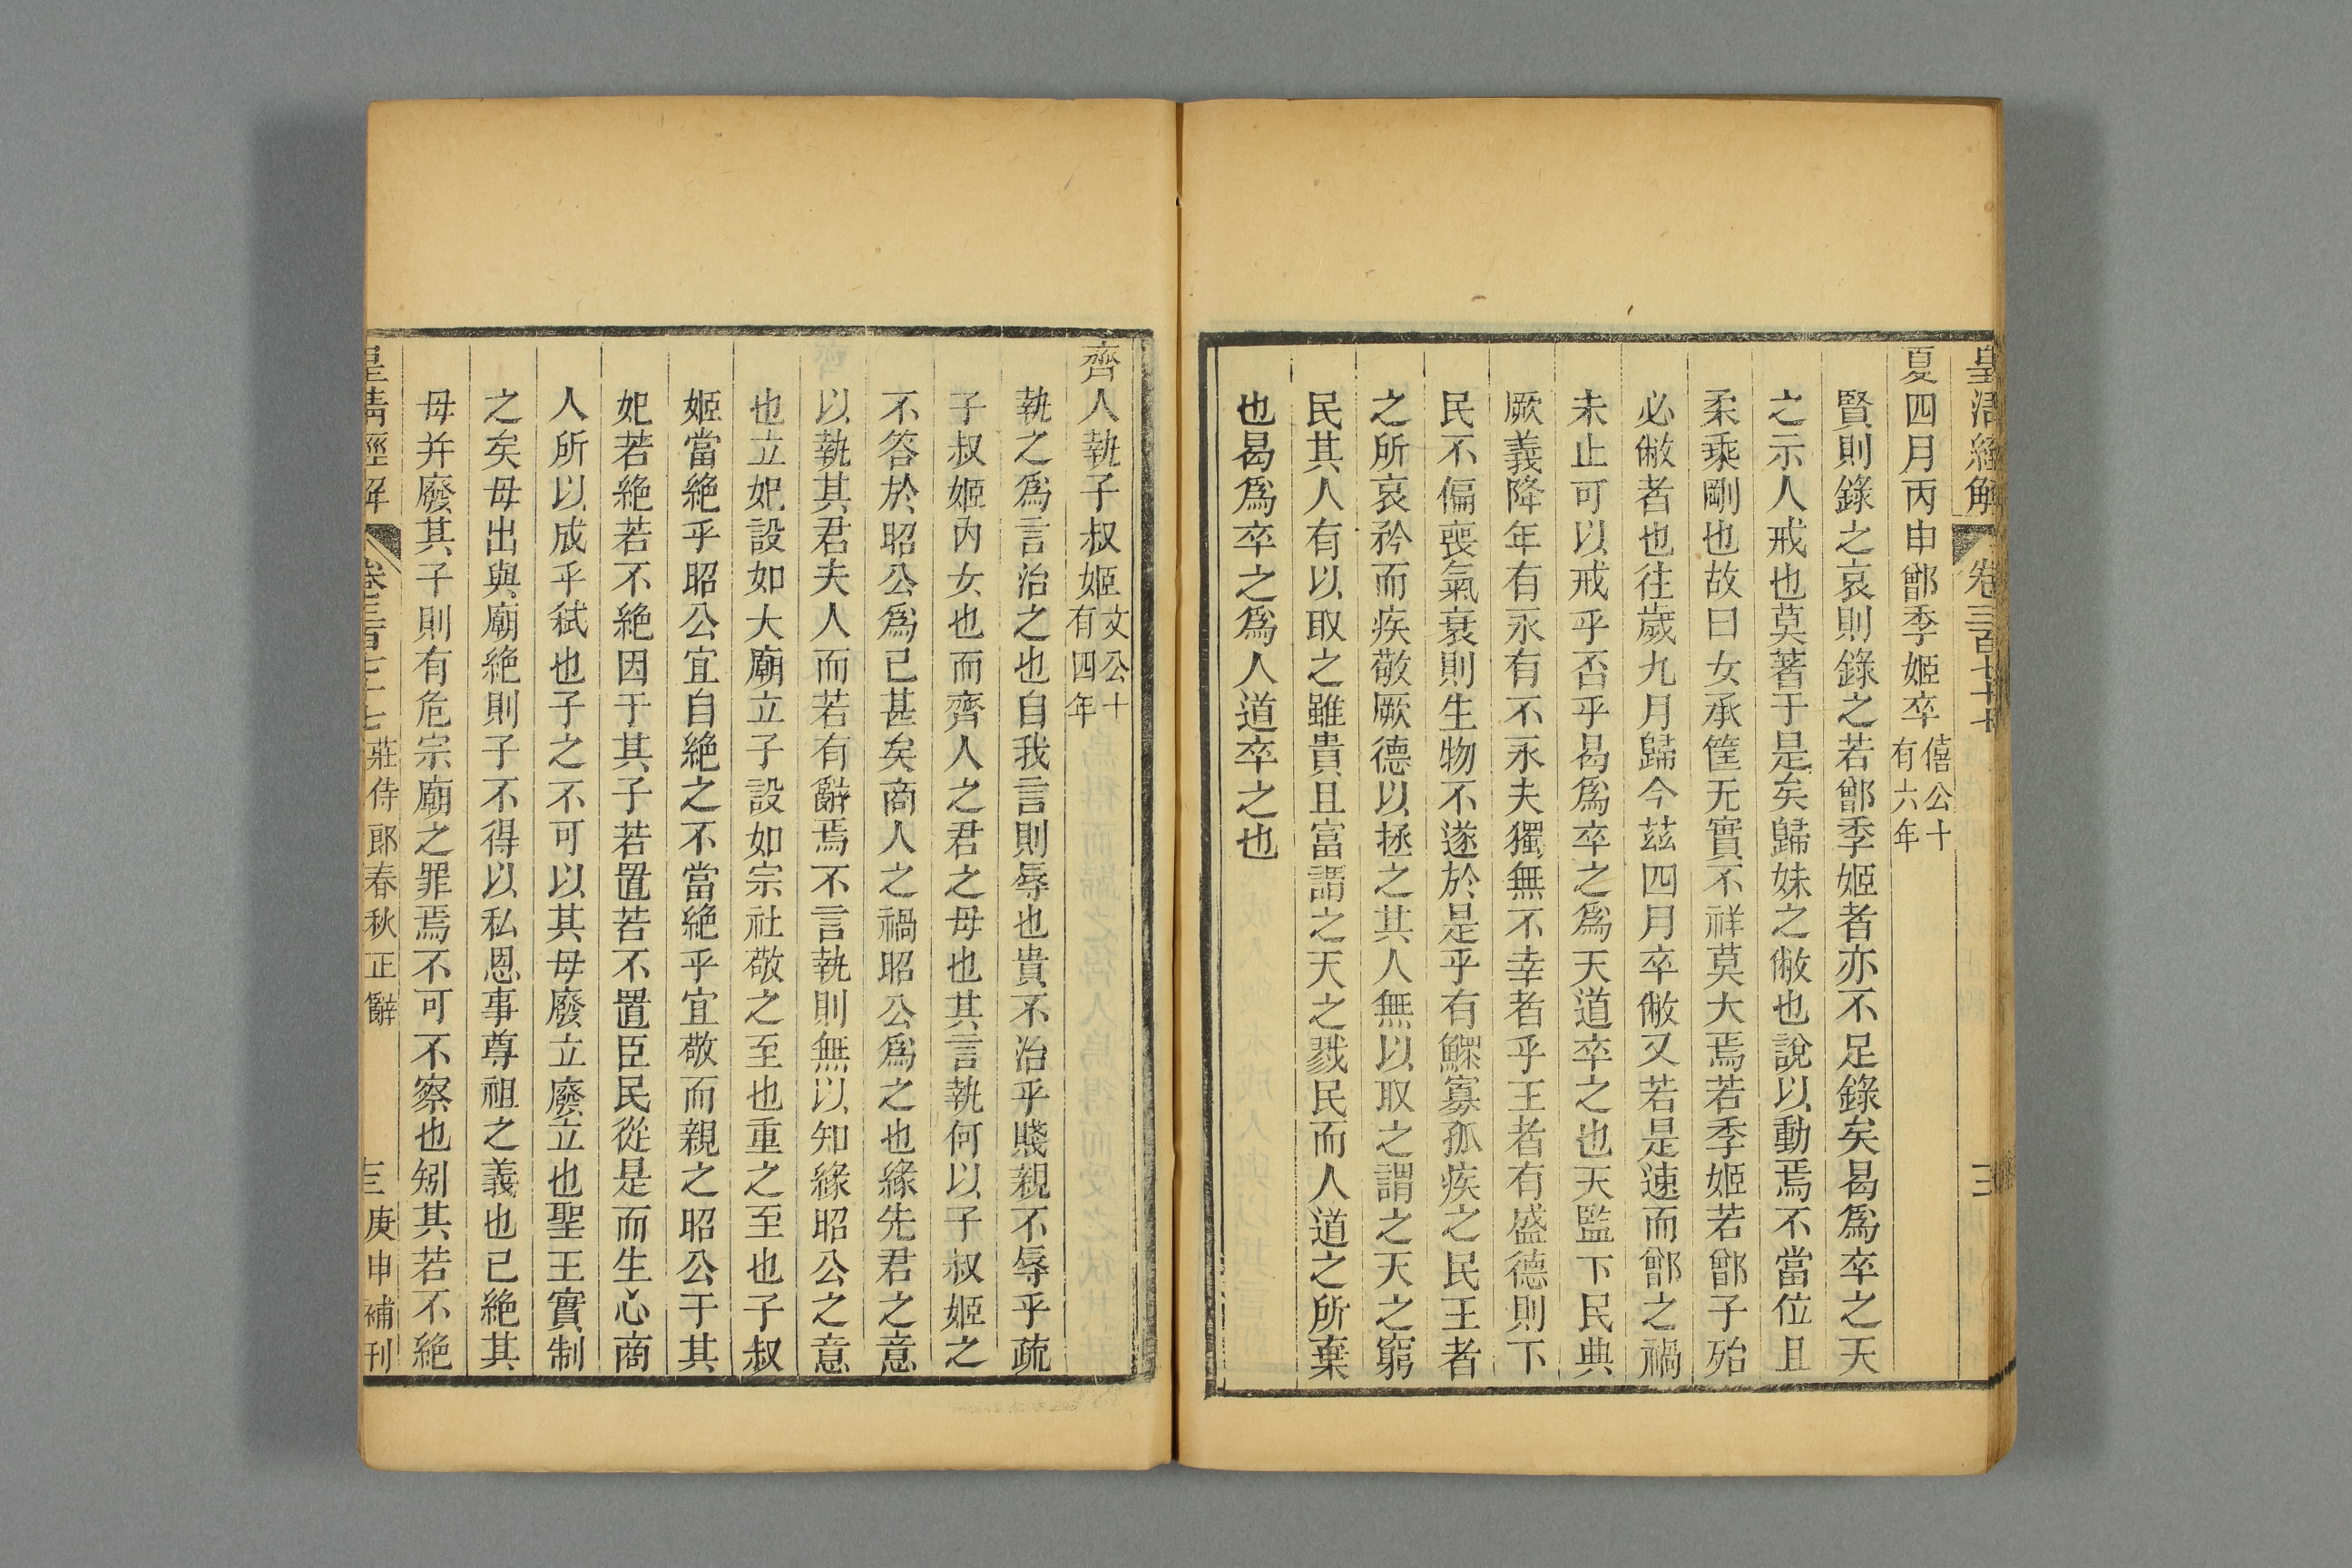 皇清經解 卷三百七十七 三
夏四月丙申鄫季姬卒僖公十有六年
賢則錄之哀則錄之若鄫季姬者亦不足錄矣曷爲卒之天
之示人戒也莫著于是矣歸妹之敝也說以動焉不當位且
柔乘剛也故曰女承筐无實不祥莫大焉若季姬若鄫子殆
必敝者也往歲九月歸今茲四月卒敝又若是速而鄫之禍
未止可以戒乎否乎曷爲卒之爲天道卒之也天監下民典
厥義降年有永有不永夫獨無不幸者乎王者有盛德則下
民不偏喪氣衰則生物不遂於是乎有鰥寡孤疾之民王者
之所哀矜而疾敬厥德以拯之其人無以取之謂之天之窮
民其人有以取之雖貴且富謂之天之戮民而人道之所棄
也曷爲卒之爲人道卒之也
齊人執子叔姬文公十有四年
執之爲言治之也自我言則辱也貴不治乎賤親不辱乎疏
子叔姬內女也而齊人之君之母也其言執何以子叔姬之
不答於昭公爲已甚矣商人之禍昭公爲之也緣先君之意
以執其君夫人而若有辭焉不言執則無以知緣昭公之意
也立妃設如大廟立子設如宗社敬之至也重之至也子叔
姬當絕乎昭公宜自絕之不當絕乎宜敬而親之昭公于其
妃若絕若不絕因于其子若置若不置臣民從是而生心商
人所以成乎弒也子之不可以其母廢立廢立也聖王實制
之矣母出與廟絕則子不得以私恩事尊祖之義也已絕其
母并廢其子則有危宗廟之罪焉不可不察也矧其若不絕
皇清經解 卷三百七十七 莊侍郎春秋正辭 三 庚申補刊